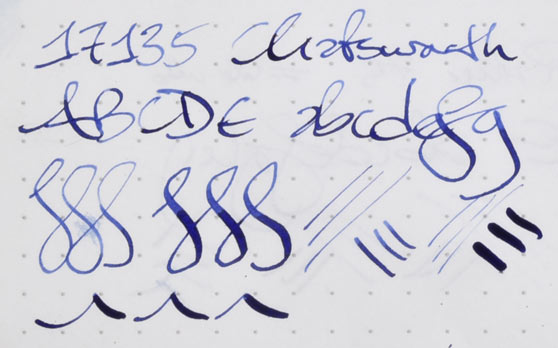 17135 Chatsworth
ABCDE abcdefg